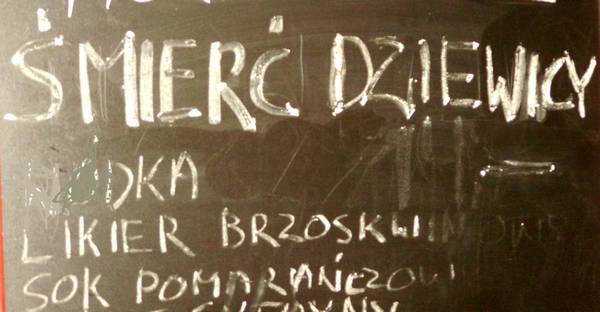 ŚMIERĆ DZIEWICY
14,-
LIKIER BRZOSKWINIOWY
SOK POMARAŃCZOWY